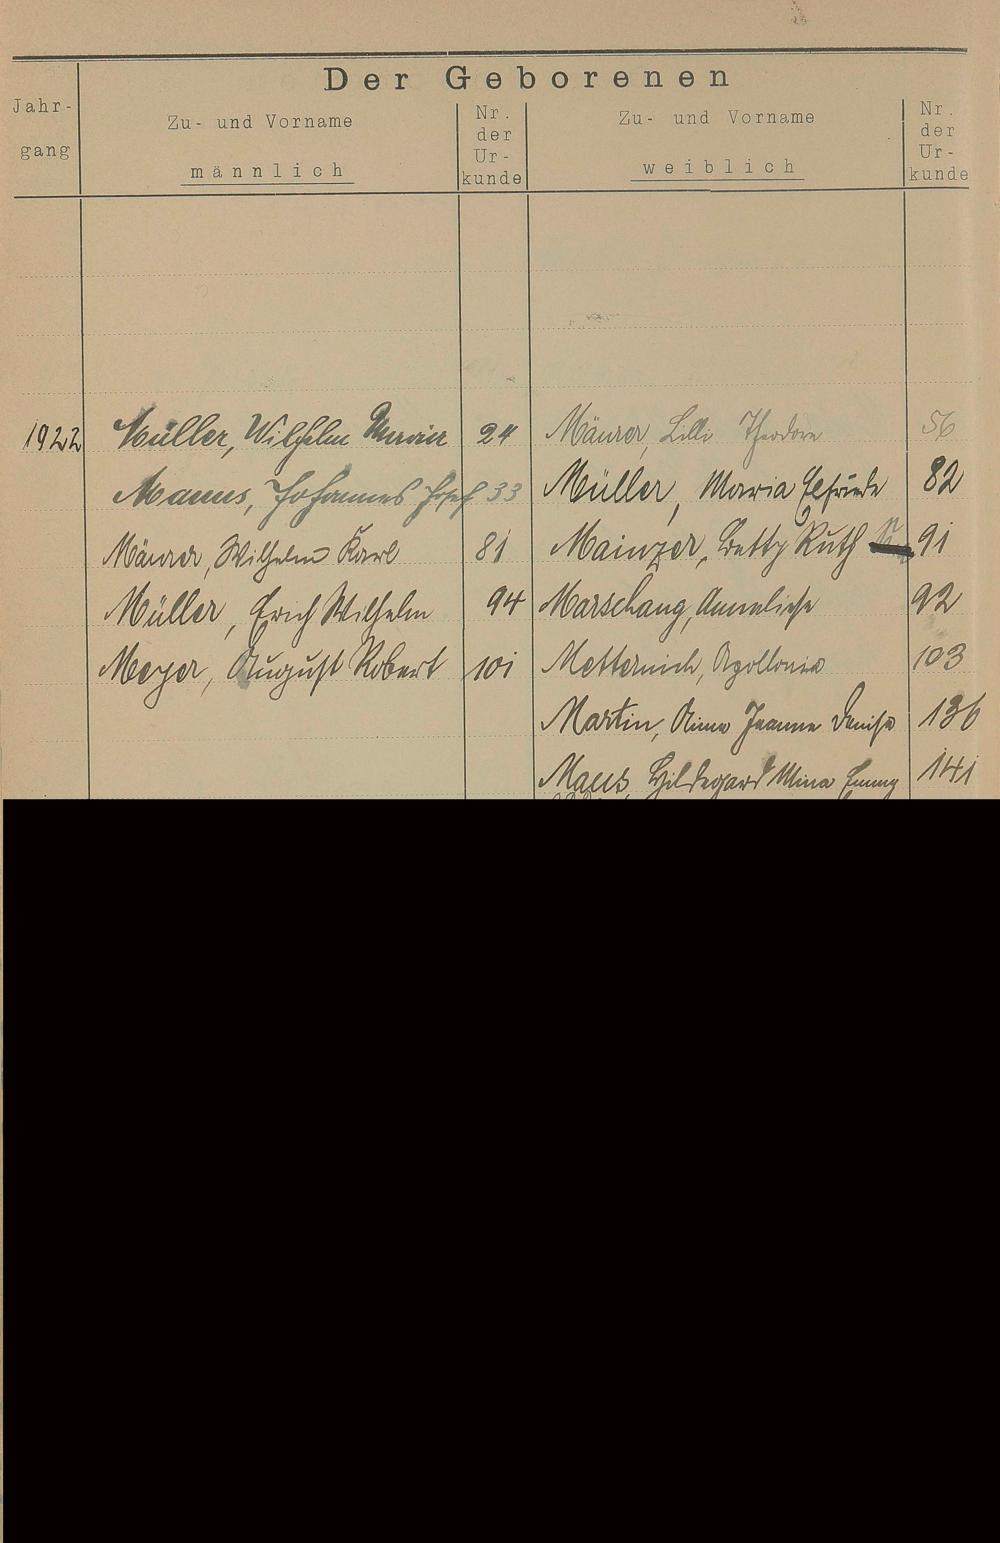 Der Geborenen
Jahr-
gang
Zu- und Vorname
männlich
Nr.
der
Ur-
kunde
Zu- und Vorname
weiblich
Nr.
der
Ur-
kunde
1922 Müller, Wilhelm 24 Mäurer, Lilli Theodora 56
Manns, Johannes Josef 33 Müller, Maria Elfriede 82
Mäurer, Wilhelm Karl 81 Mainzer, Betty Ruth 91
Müller, Erich Wilhelm 94 Marschang, Anneliese 92
Meyer, August Robert 101 Metternich, Apollonia 103
Martin, Jeanne Denise 136
Maus, Hildegard Mina Emmy 141